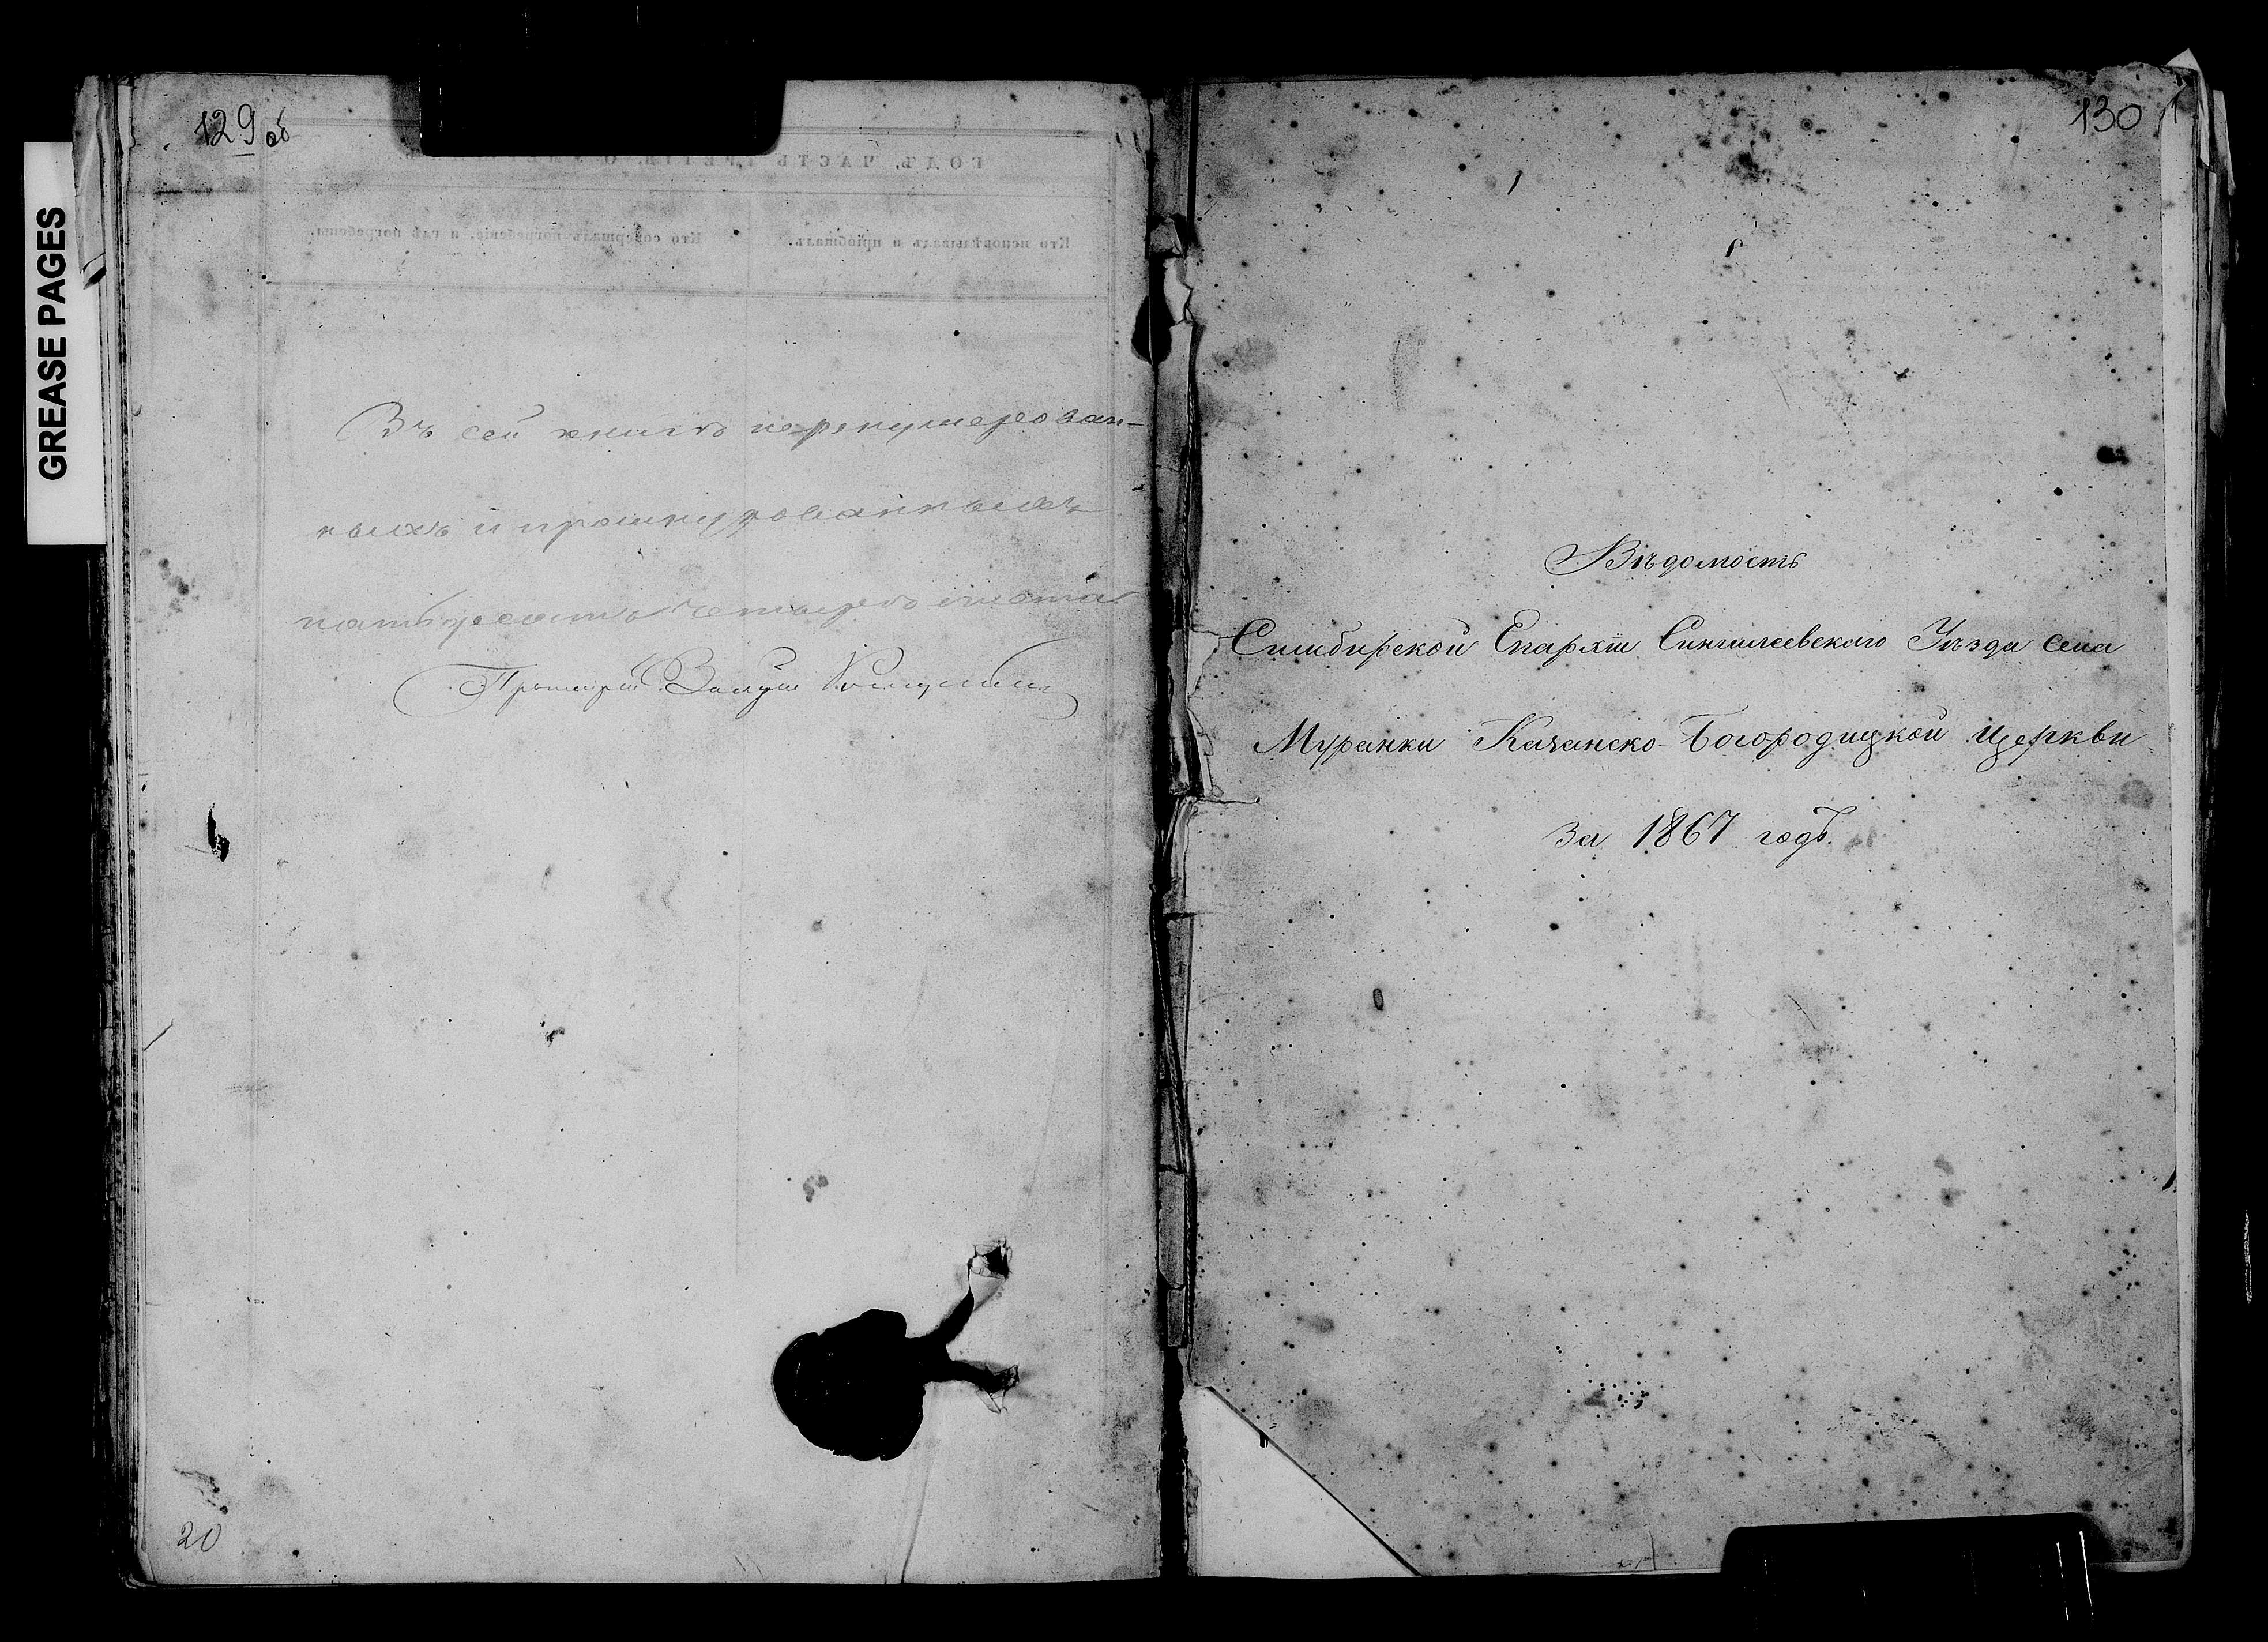 GREASE PAGES
129 об
ГОДЪ, ЧАСТЬ ТРЕТІЯ, О
Кто исповѣдывалъ и пріобщалъ.
Кто совершалъ погребеніе, и гдѣ погребены.
Въ сей книгѣ перенумерован-
ныхъ и прошнурованныхъ
пятьдесятъ четыре листа
20
130
1
Вѣдомость
Симбирской Епархіи Сингилеевскаго Уѣзда села
Муранки Казанско-Богородицкой Церкви
за 1867 годъ.